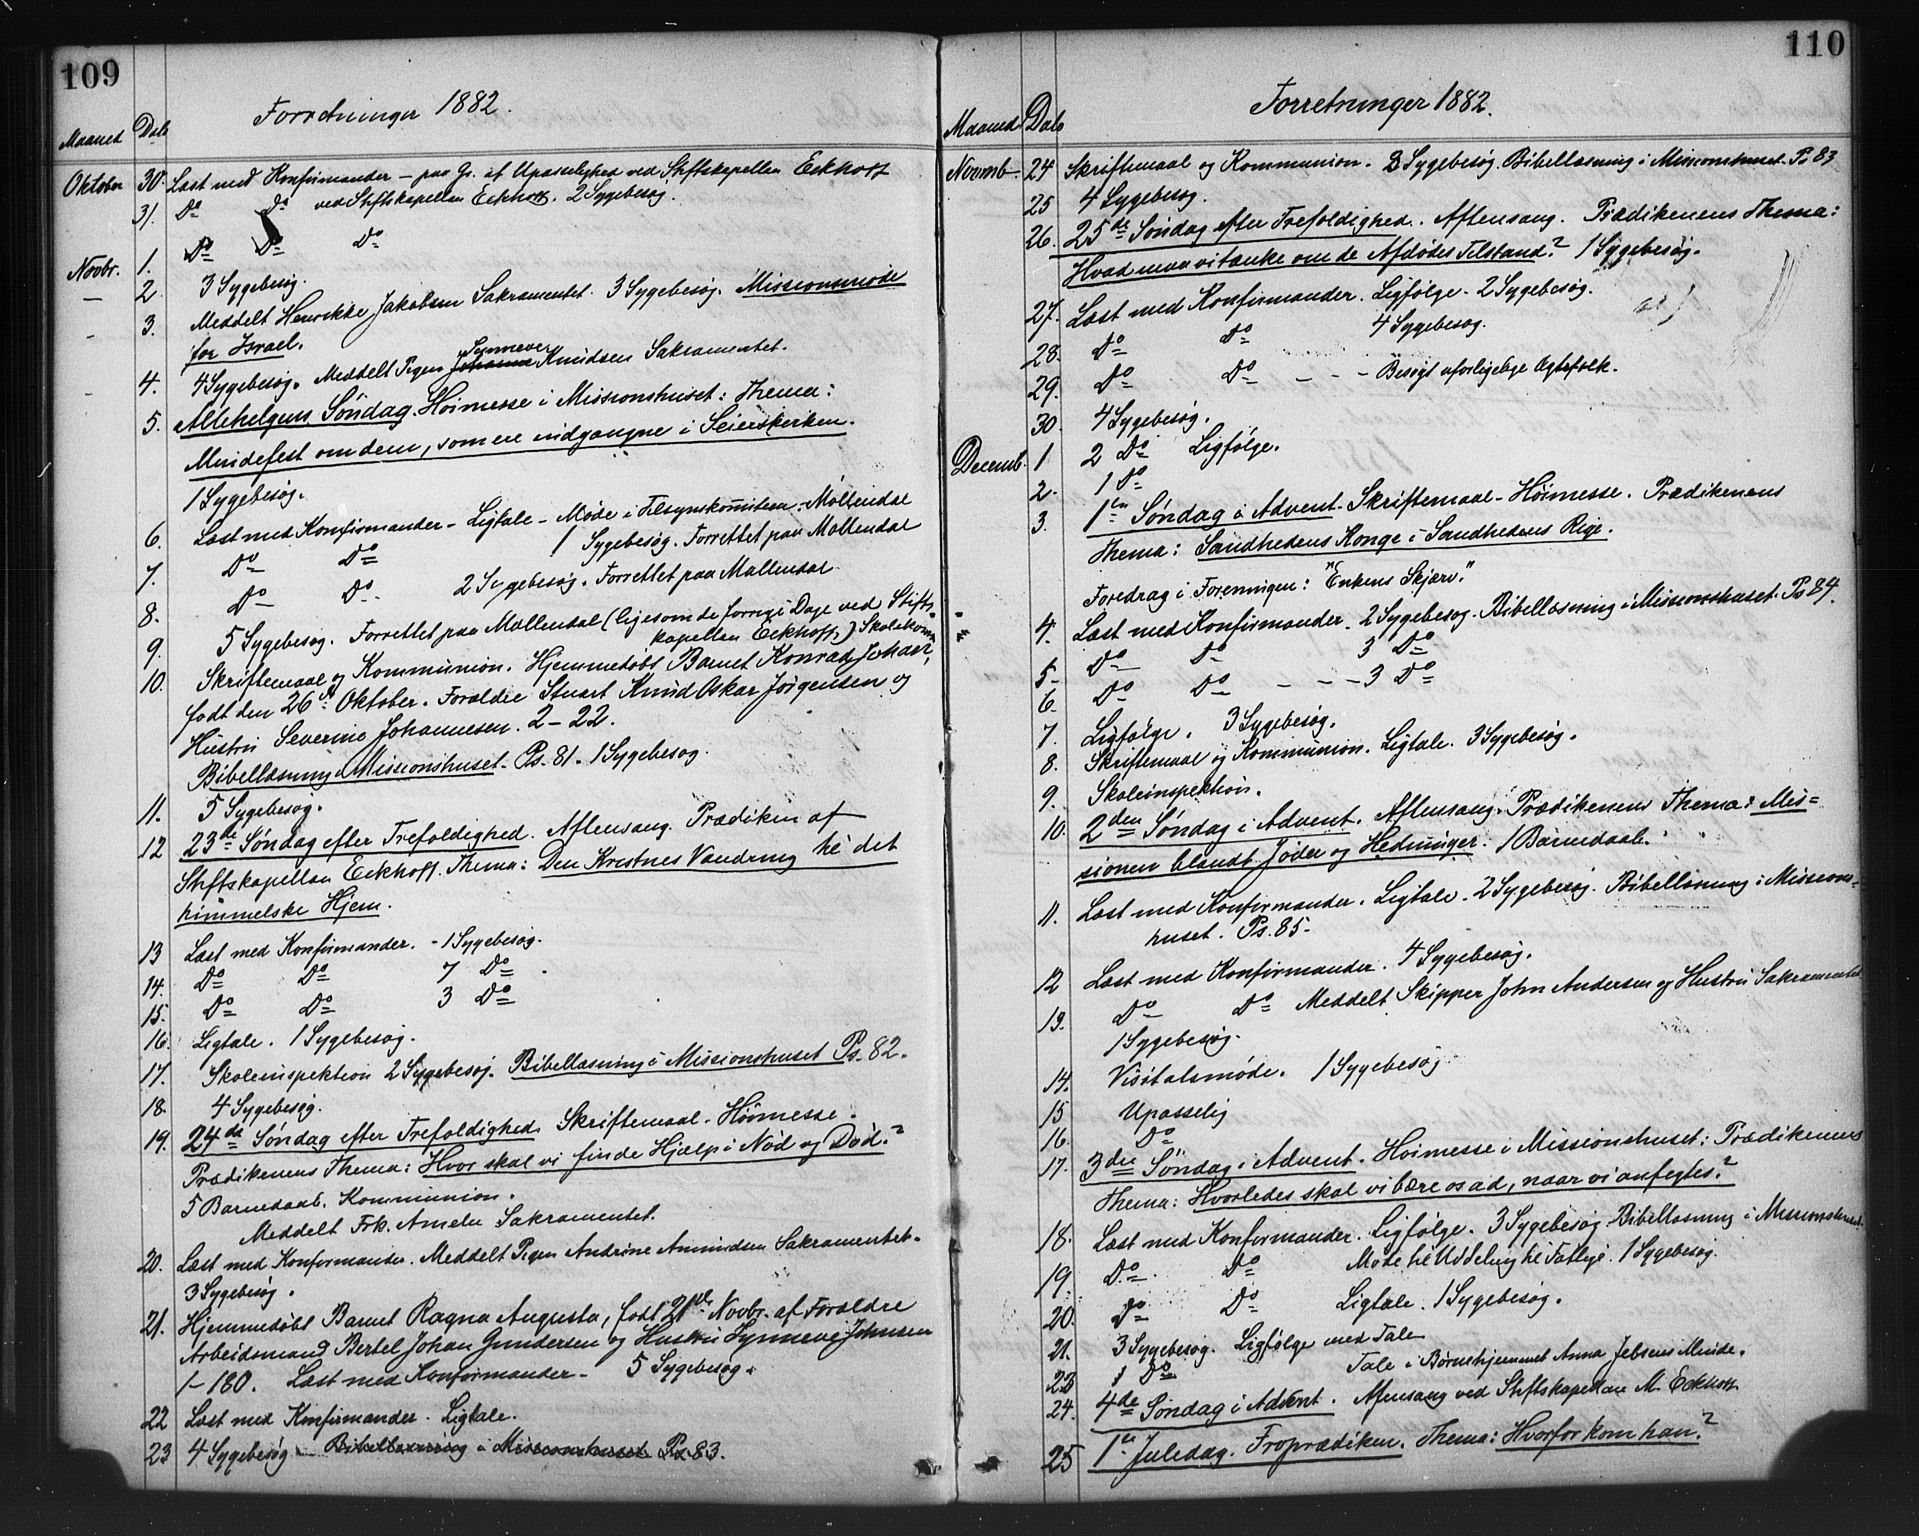 109
Forretninger 1882.
Maaned Dato
Oktober 30. Læst med Konfirmander – paa Gr. af Upasselighed ved Stiftskapellan Eckhoff
31. Do Do ved Stiftskapellan Eckhoff. 2 Sygebesøg.
Novbr. 1. Do Do Do
— 2 3 Sygebesøg.
- 3. Meddelt Henrikke Jakobsen Sakramentet. 3 Sygebesøg. Missionsmøde
for Israel.
Synneve
- 4. 4 Sygebesøg. Meddelt Pigen Johanne Knudsen Sakramentet.
5. Allehelgens Søndag. Høimesse i Missionshuset: Thema:
Mindefest om dem, som ere indgangne i Seierskirken.
1 Sygebesøg.
6. Læst med Konfirmander – Ligtale – Møde i Tilsynskomiteen: Møllendal
7. Do Do 1 Sygebesøg. Forrettet paa Møllendal
8. Do Do. 2 Sygebesøg. Forrettet paa Møllendal
9. 5 Sygebesøg. Forrettet paa Møllendal (ligesom de forrige Dage ved Stifts-
kapellan Eckhoff)
10. Skriftemaal og Kommunion. Hjemmedøbt Barnet Konrad Johan,
født den 26de Oktober. Forældre Stuart Knud Oskar Jørgensen og
Hustru Severine Johannesen. 2–22.
Bibellæsning i Missionshuset. Ps. 81. 1 Sygebesøg.
11. 5 Sygebesøg.
12 23de Søndag efter Trefoldighed. Aftensang. Prædiken af
Stiftskapellan Eckhoff. Thema: Den Kristnes Vandring til det
himmelske Hjem.
13 Læst med Konfirmander. - 1 Sygebesøg.
14. Do Do 7 Do.
15. Do Do 3 Do
16. Ligtale. 1 Sygebesøg.
17. Skoleinspektion 2 Sygebesøg. Bibellæsning i Missionshuset Ps. 82.
18. 4 Sygebesøg.
19. 24de Søndag efter Trefoldighed. Skriftemaal. Høimesse.
Prædikenens Thema: Hvor skal vi finde Hjælp i Nød og Død?
5 Barnedaab. Kommunion.
Meddelt Frk. Ameln Sakramentet.
20. Læst med Konfirmander. Meddelt Pigen Andrine Amundsen Sakramentet.
3 Sygebesøg.
21. Hjemmedøbt Barnet Ragna Augusta, født 21de Novbr. af Forældre
Arbeidsmand Bertel Johan Gundersen og Hustru Synneve Johnsen
1–180. Læst med Konfirmander – 5 Sygebesøg.
22 Læst med Konfirmander. Ligtale.
23 4 Sygebesøg – Bibellæsning i Missionshuset Ps 83.
110
Forretninger 1882.
Maaned Dato
Novemb. 24 Skriftemaal og Kommunion. 3 Sygebesøg. Bibellæsning i Missionshuset. Ps 83
25 4 Sygebesøg.
26. 25de Søndag efter Trefoldighed. Aftensang. Prædikenens Thema:
Hvad maa vi tænke om de Afdødes Tilstand? 1 Sygebesøg.
27. Læst med Konfirmander. Ligfølge. 2 Sygebesøg.
28. Do Do 4 Sygebesøg.
29. Do Do – – – Besøgt uforligelige Ægtefolk.
30. 4 Sygebesøg.
Decemb. 1 2 Do Ligfølge.
2. 1 Do
3. 1ste Søndag i Advent. Skriftemaal – Høimesse. Prædikenens
Thema: Sandhedens Konge i Sandhedens Rige.
Foredrag i Foreningen: "Enkens Skjærv."
4. Læst med Konfirmander. 2 Sygebesøg. Bibellæsning i Missionshuset. Ps 84.
5- Do Do 3 Do
6. Do Do – – – 3 Do
7. Ligfølge. 3 Sygebesøg.
8. Skriftemaal og Kommunion. Ligtale. 3 Sygebesøg.
9. Skoleinspektion.
10. 2den Søndag i Advent. Aftensang. Prædikenens Thema: Mis=
sionen blandt Jøder og Hedninger. 1 Barnedaab.
11. Læst med Konfirmander. Ligtale. 2 Sygebesøg. Bibellæsning i Missions-
huset. Ps. 85.
12 Læst med Konfirmander. 4 Sygebesøg.
13. Do Do Meddelt Skipper John Andersen og Hustru Sakramentet
1 Sygebesøg.
14. Visitatsmøde. 1 Sygebesøg
15 Upasselig
16. Do
17. 3die Søndag i Advent. Høimesse i Missionshuset: Prædikenens
Thema: Hvorledes skal vi bære os ad, naar vi anfegtes?
18. Læst med Konfirmander. Ligfølge. 3 Sygebesøg. Bibellæsning i Missionshuset
19. Do Do Møde til Uddeling til Fattige. 1 Sygebesøg.
20. Do Do Ligtale. 1 Sygebesøg.
21. 3 Sygebesøg. Ligfølge med Tale
1 Do Tale i Børnehjemmet Anna Jebsens Minde.
24. 4de Søndag i Advent. Aftensang ved Stiftskapellan M. Eckhoff
25 1ste Juledag. Froprædiken. Thema: Hvorfor kom han?